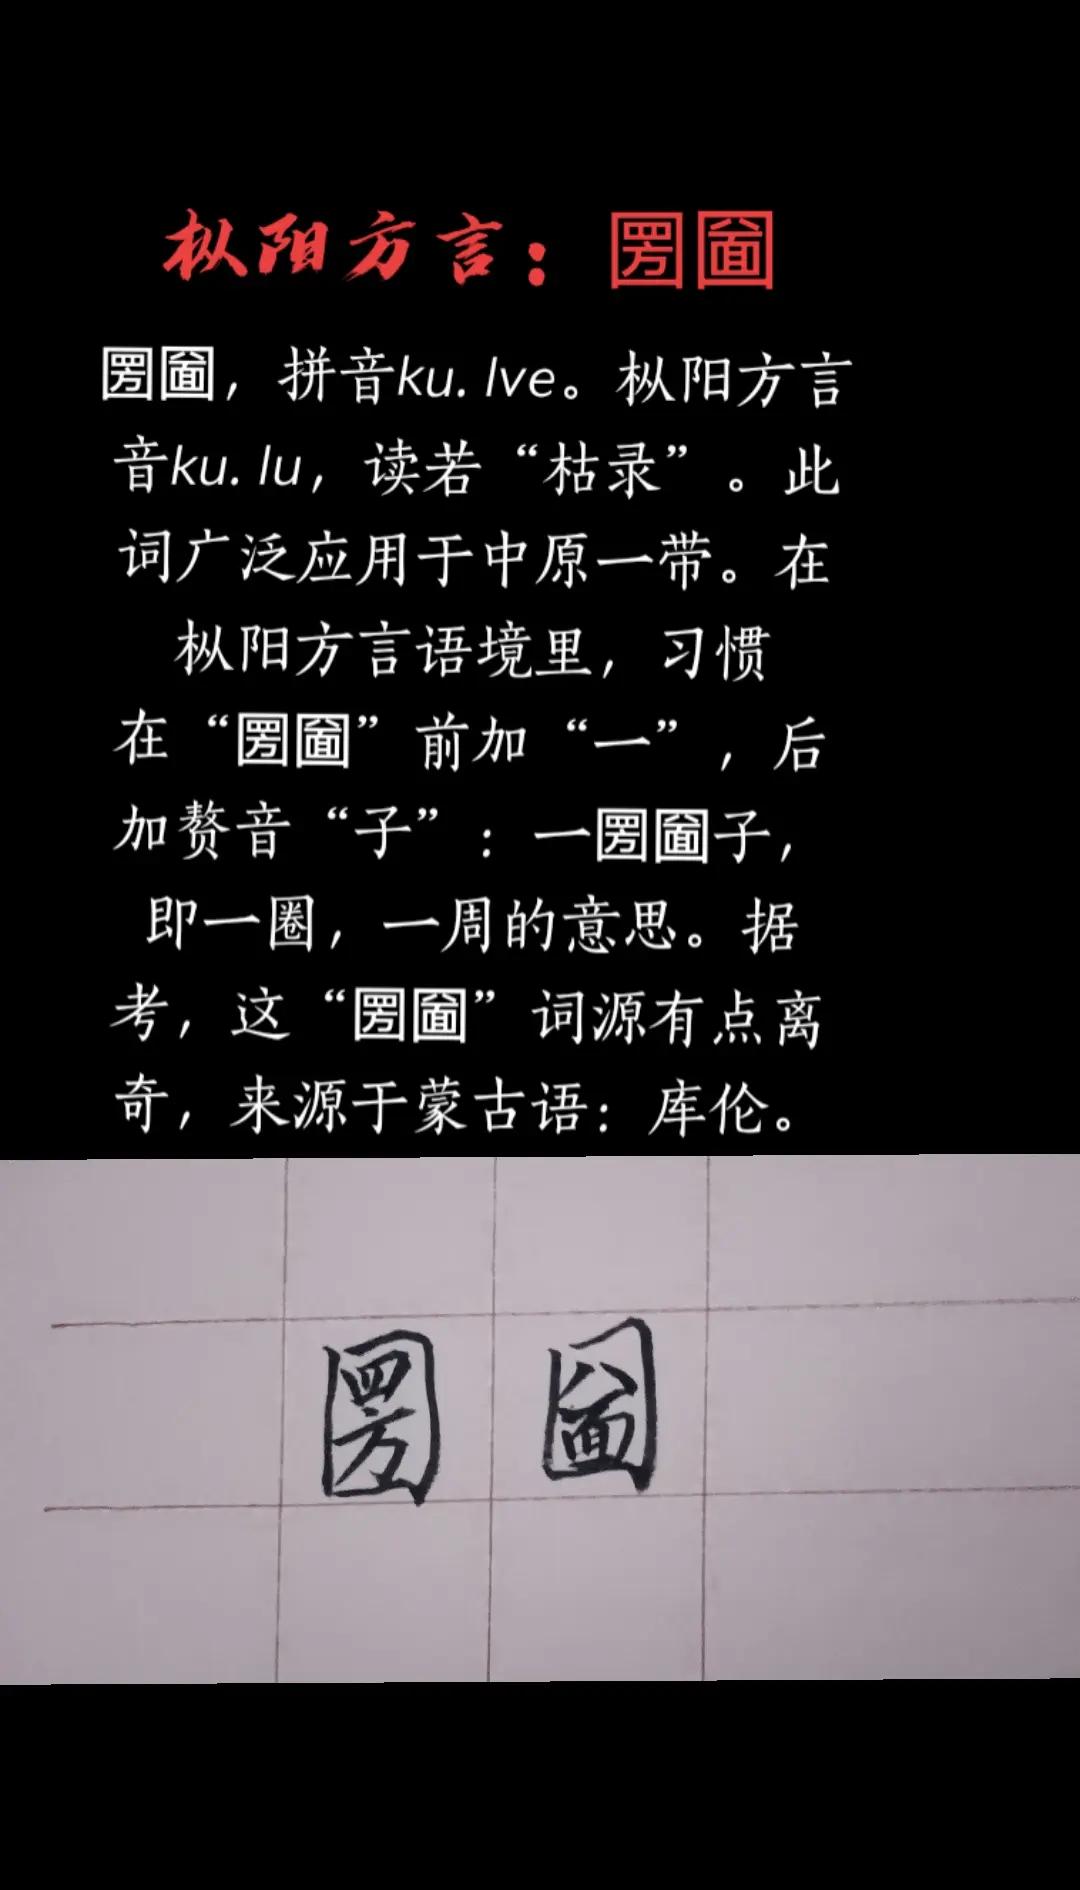 枞阳方言：圐圙
圐圙，拼音ku. lve。枞阳方言
音ku. lu，读若“枯录”。此
词广泛应用于中原一带。在
枞阳方言语境里，习惯
在“圐圙”前加“一”，后
加赘音“子”：一圐圙子，
即一圈，一周的意思。据
考，这“圐圙”词源有点离
奇，来源于蒙古语：库伦。
圐圙